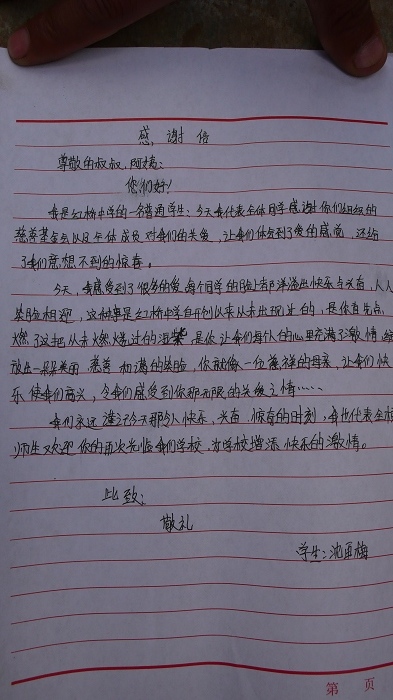 感谢信
尊敬的叔叔、阿姨:
您们好!
我是红桥中学的一名普通学生:今天我代表全体同学感谢你们组织的
慈善基金会以及全体成员对我们的关爱,让我们体会到了爱的感觉,还给
了我们意想不到的惊喜。
今天,我感受到了很多的爱,每个同学的脸上都洋溢出快乐与兴喜,人人
笑脸相迎,这种事是红桥中学自开创以来从未出现过的,是你首先点
燃了这把从未燃烧过的 是你让我们每个人的心里充满了激情 绽
放出一朵朵美丽 慈善 和满的笑脸,你就像一位慈祥的母亲,让我们快
乐 使我们高兴,令我们感受到你那无限的关爱之情……
我们永远谨记今天那份快乐,兴喜,惊奇的时刻,我也代表全校
师生欢迎您的再次光临我们学校,为学校增添快乐的激情。
此致:
敬礼
学生:沈亚梅
第 页